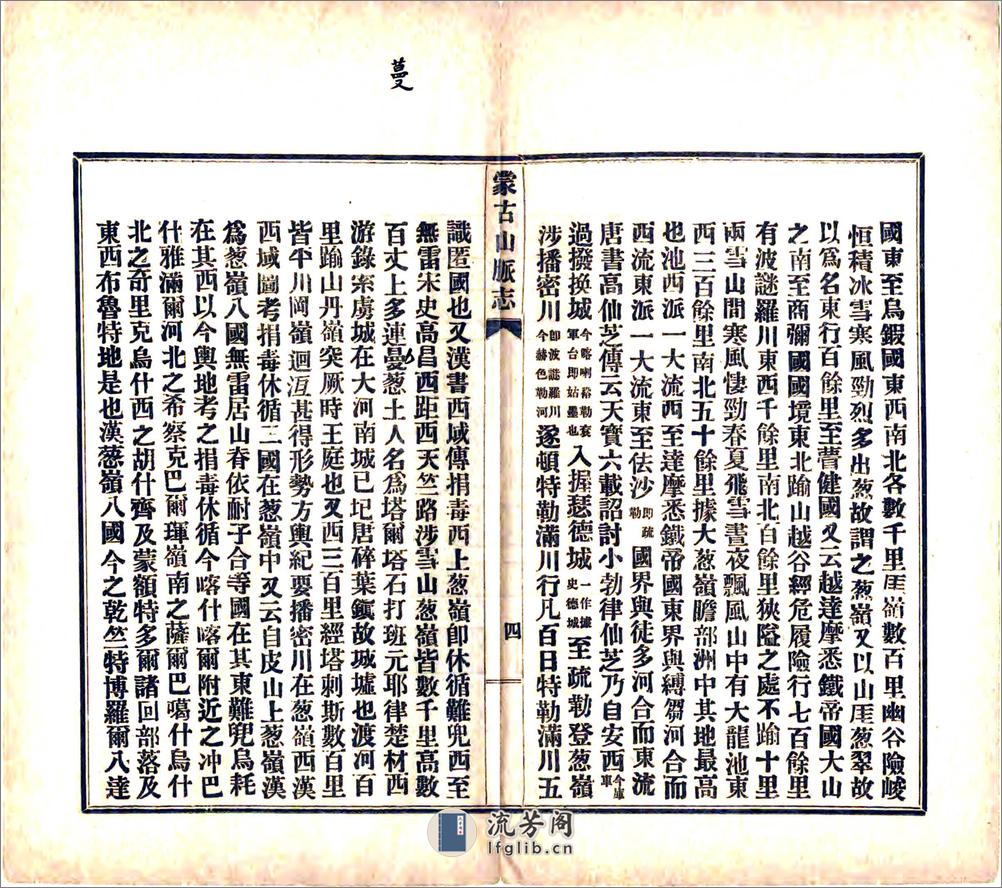 國東至烏鎩國東西南北各數千里厓嶺數百里幽谷險峻
恒積冰雪寒風勁烈多出葱故謂之葱嶺又以山厓葱翠故
以爲名東行百餘里至瞢健國又云越達摩悉鐵帝國大山
之南至商彌國國境東北踰山越谷經危履險行七百餘里
有波謎羅川東西千餘里南北百餘里狹隘之處不踰十里
兩雪山間寒風悽勁春夏飛雪晝夜飄風山中有大龍池東
西三百餘里南北五十餘里據大葱嶺瞻部洲中其地最高
也池西派一大流西至達摩悉鐵帝國東界與縛芻河合而
西流東派一大流東至佉沙即疏勒國界與徒多河合而東流
唐書高仙芝傳云天寶六載詔討小勃律仙芝乃自安西今庫車
過撥換城今喀喇裕勒袞軍台即姑墨也入握瑟德城一作據史德城至疏勒登葱嶺
涉播密川即波謎羅川今赫色勒河遂頓特勒滿川行凡百日特勒滿川五
蒙古山脈志
四
蔓
識匿國也又漢書西域傳捐毒西上葱嶺即休循難兜西至
無雷宋史高昌西距西天竺路涉雪山葱嶺皆數千里高數
百丈上多連曼葱土人名爲塔爾塔石打班元耶律楚材西
游錄索虜城在大河南城已圮唐碎葉鎭故城墟也渡河百
里踰山丹嶺突厥時王庭也又西三百里經塔剌斯數百里
皆平川岡嶺迴沍甚得形勢方輿紀要播密川在葱嶺西漢
西域圖考捐毒休循二國在葱嶺中又云自皮山上葱嶺漢
爲葱嶺八國無雷居山脊依耐子合等國在其東難兜烏耗
在其西以今輿地考之捐毒休循今喀什喀爾附近之冲巴
什雅滿爾河北之希察克巴爾琿嶺南之薩爾巴噶什烏什
北之奇里克烏什西之胡什齊及蒙額特多爾諸回部落及
東西布魯特地是也漢葱嶺八國今之乾竺特博羅爾八達
流芳阁
lfglib.cn